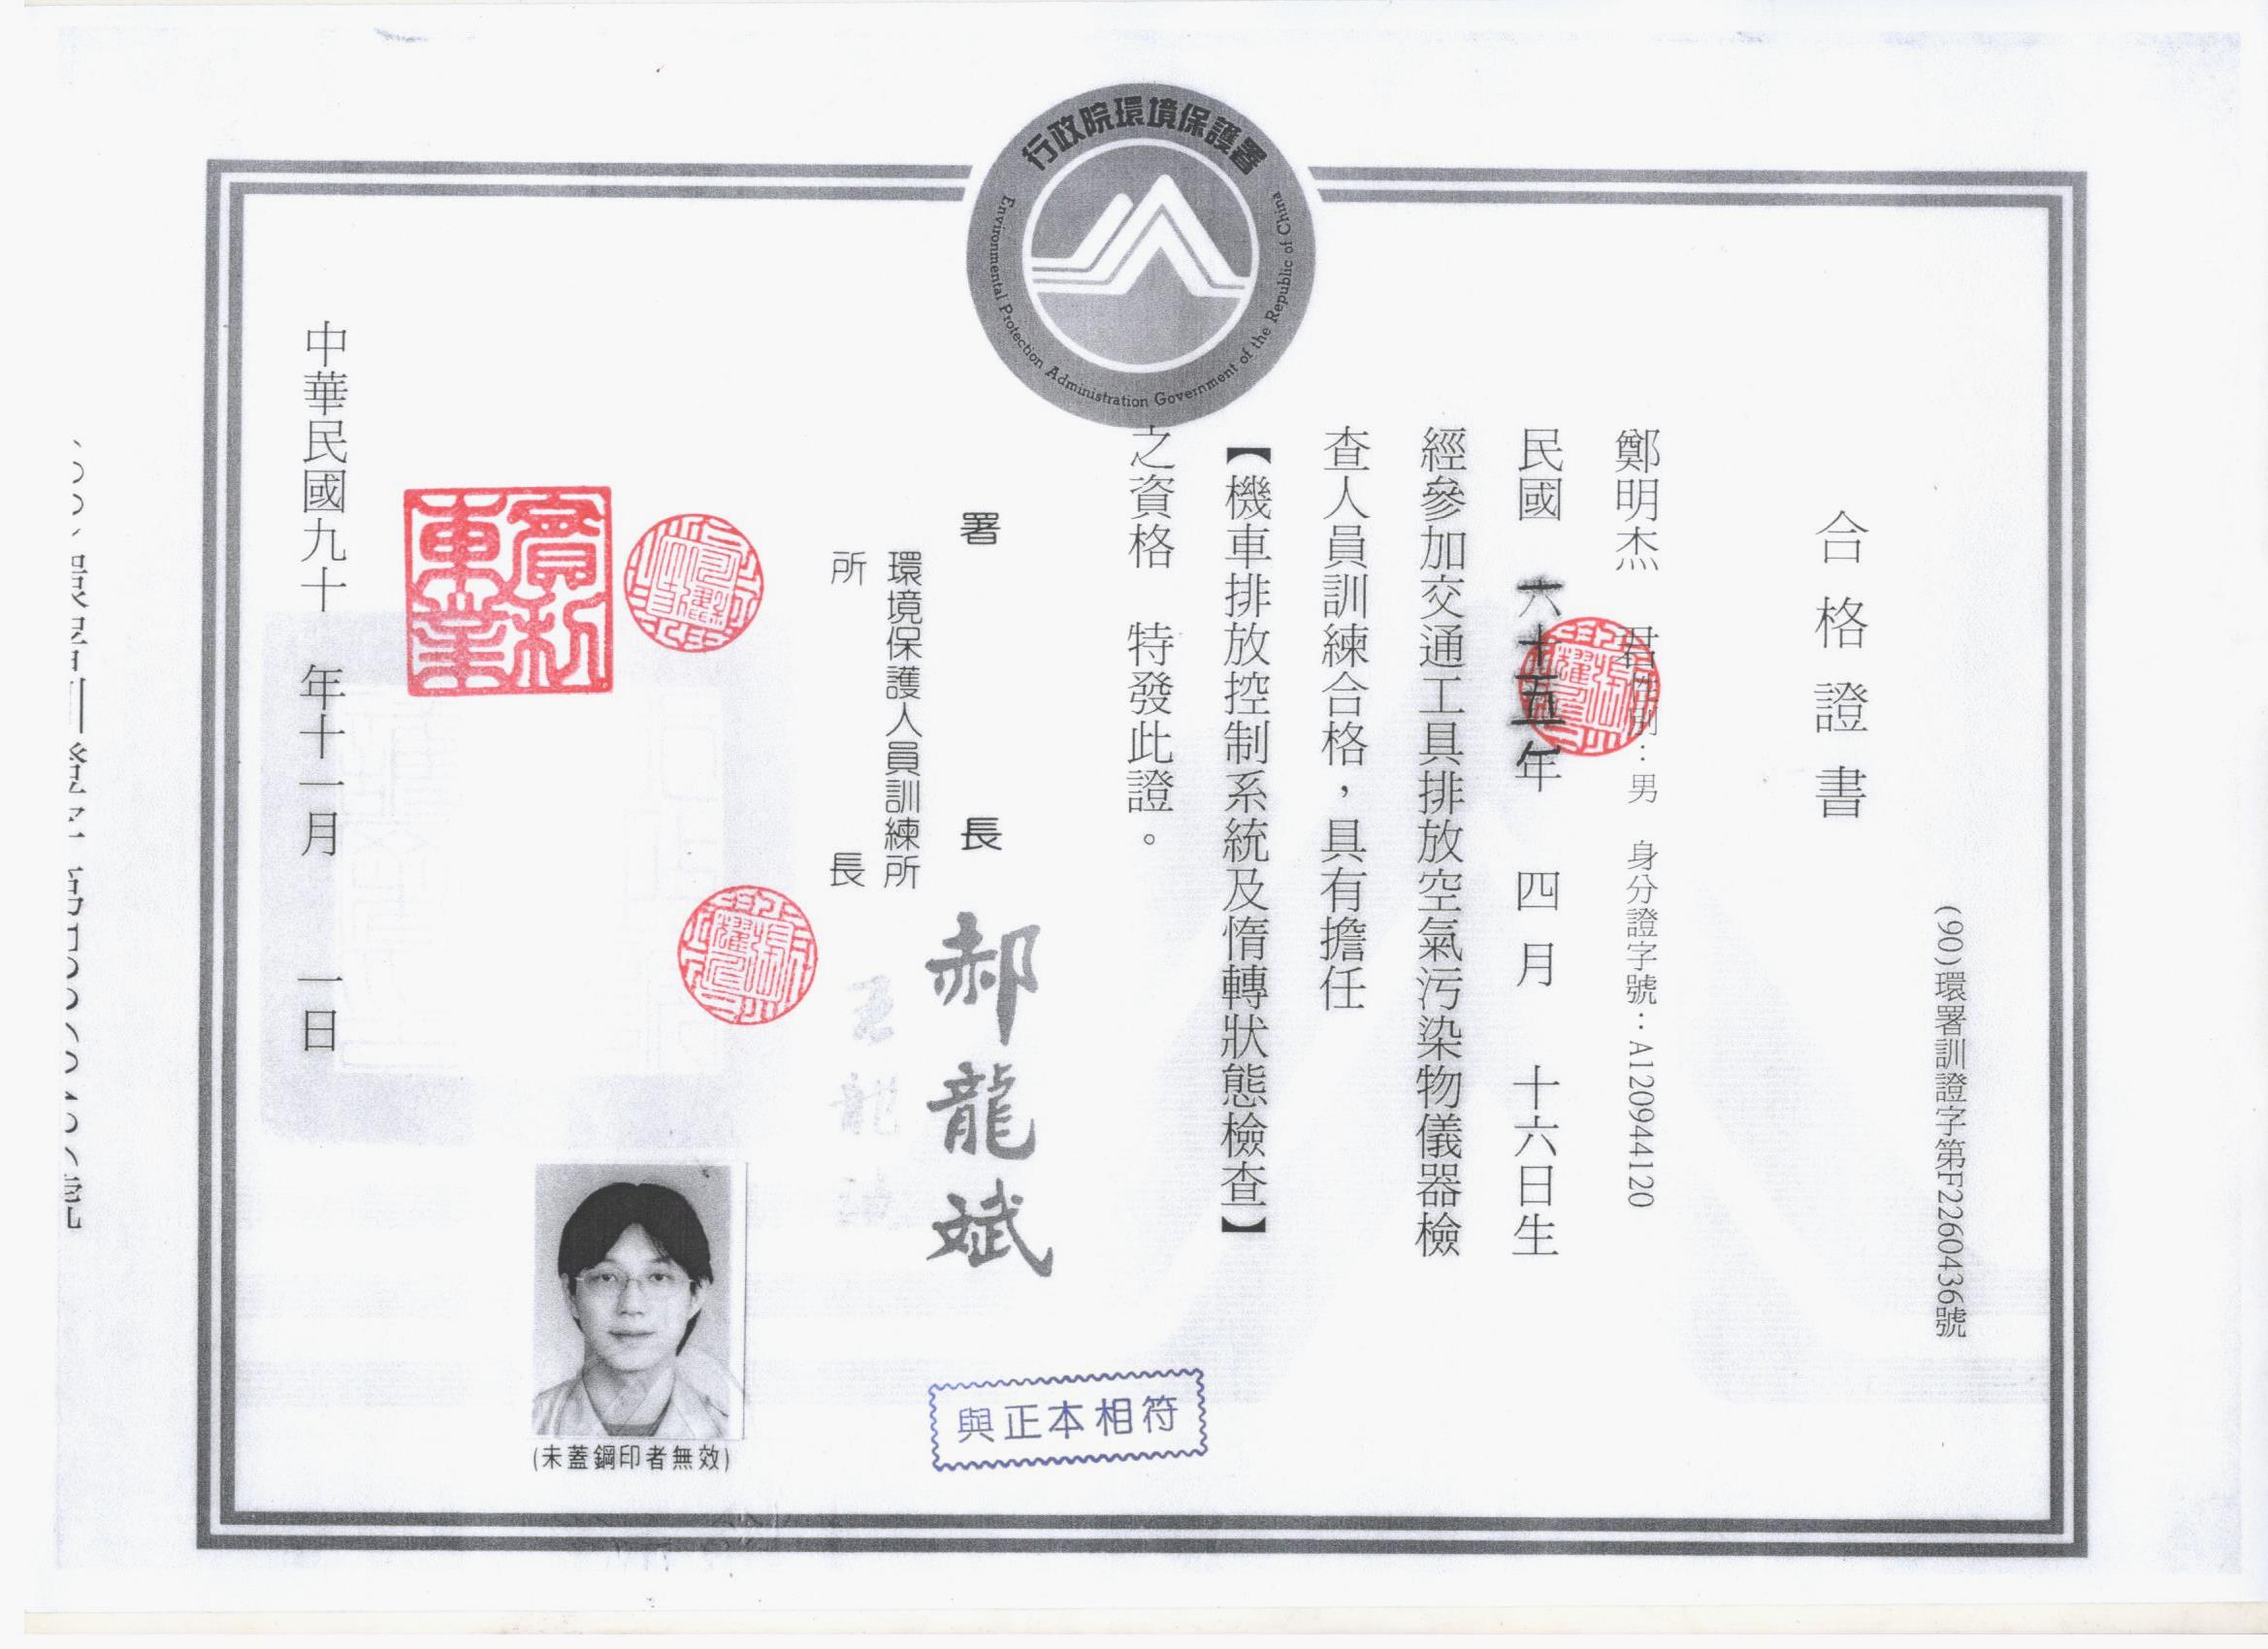 行政院環境保護署
Environmental Protection Administration Government of the Republic of China
(90)環署訓證字第F2260436號
合格證書
鄭明杰 君 性別：男 身分證字號：A120944120
民國 六十五年 四月 十六日生
經參加交通工具排放空氣污染物儀器檢
查人員訓練合格，具有擔任
【機車排放控制系統及惰轉狀態檢查】
之資格 特發此證。
署長 郝龍斌
環境保護人員訓練所
所長
實利
車業
中華民國九十 年十一月 一日
(未蓋鋼印者無效)
與正本相符